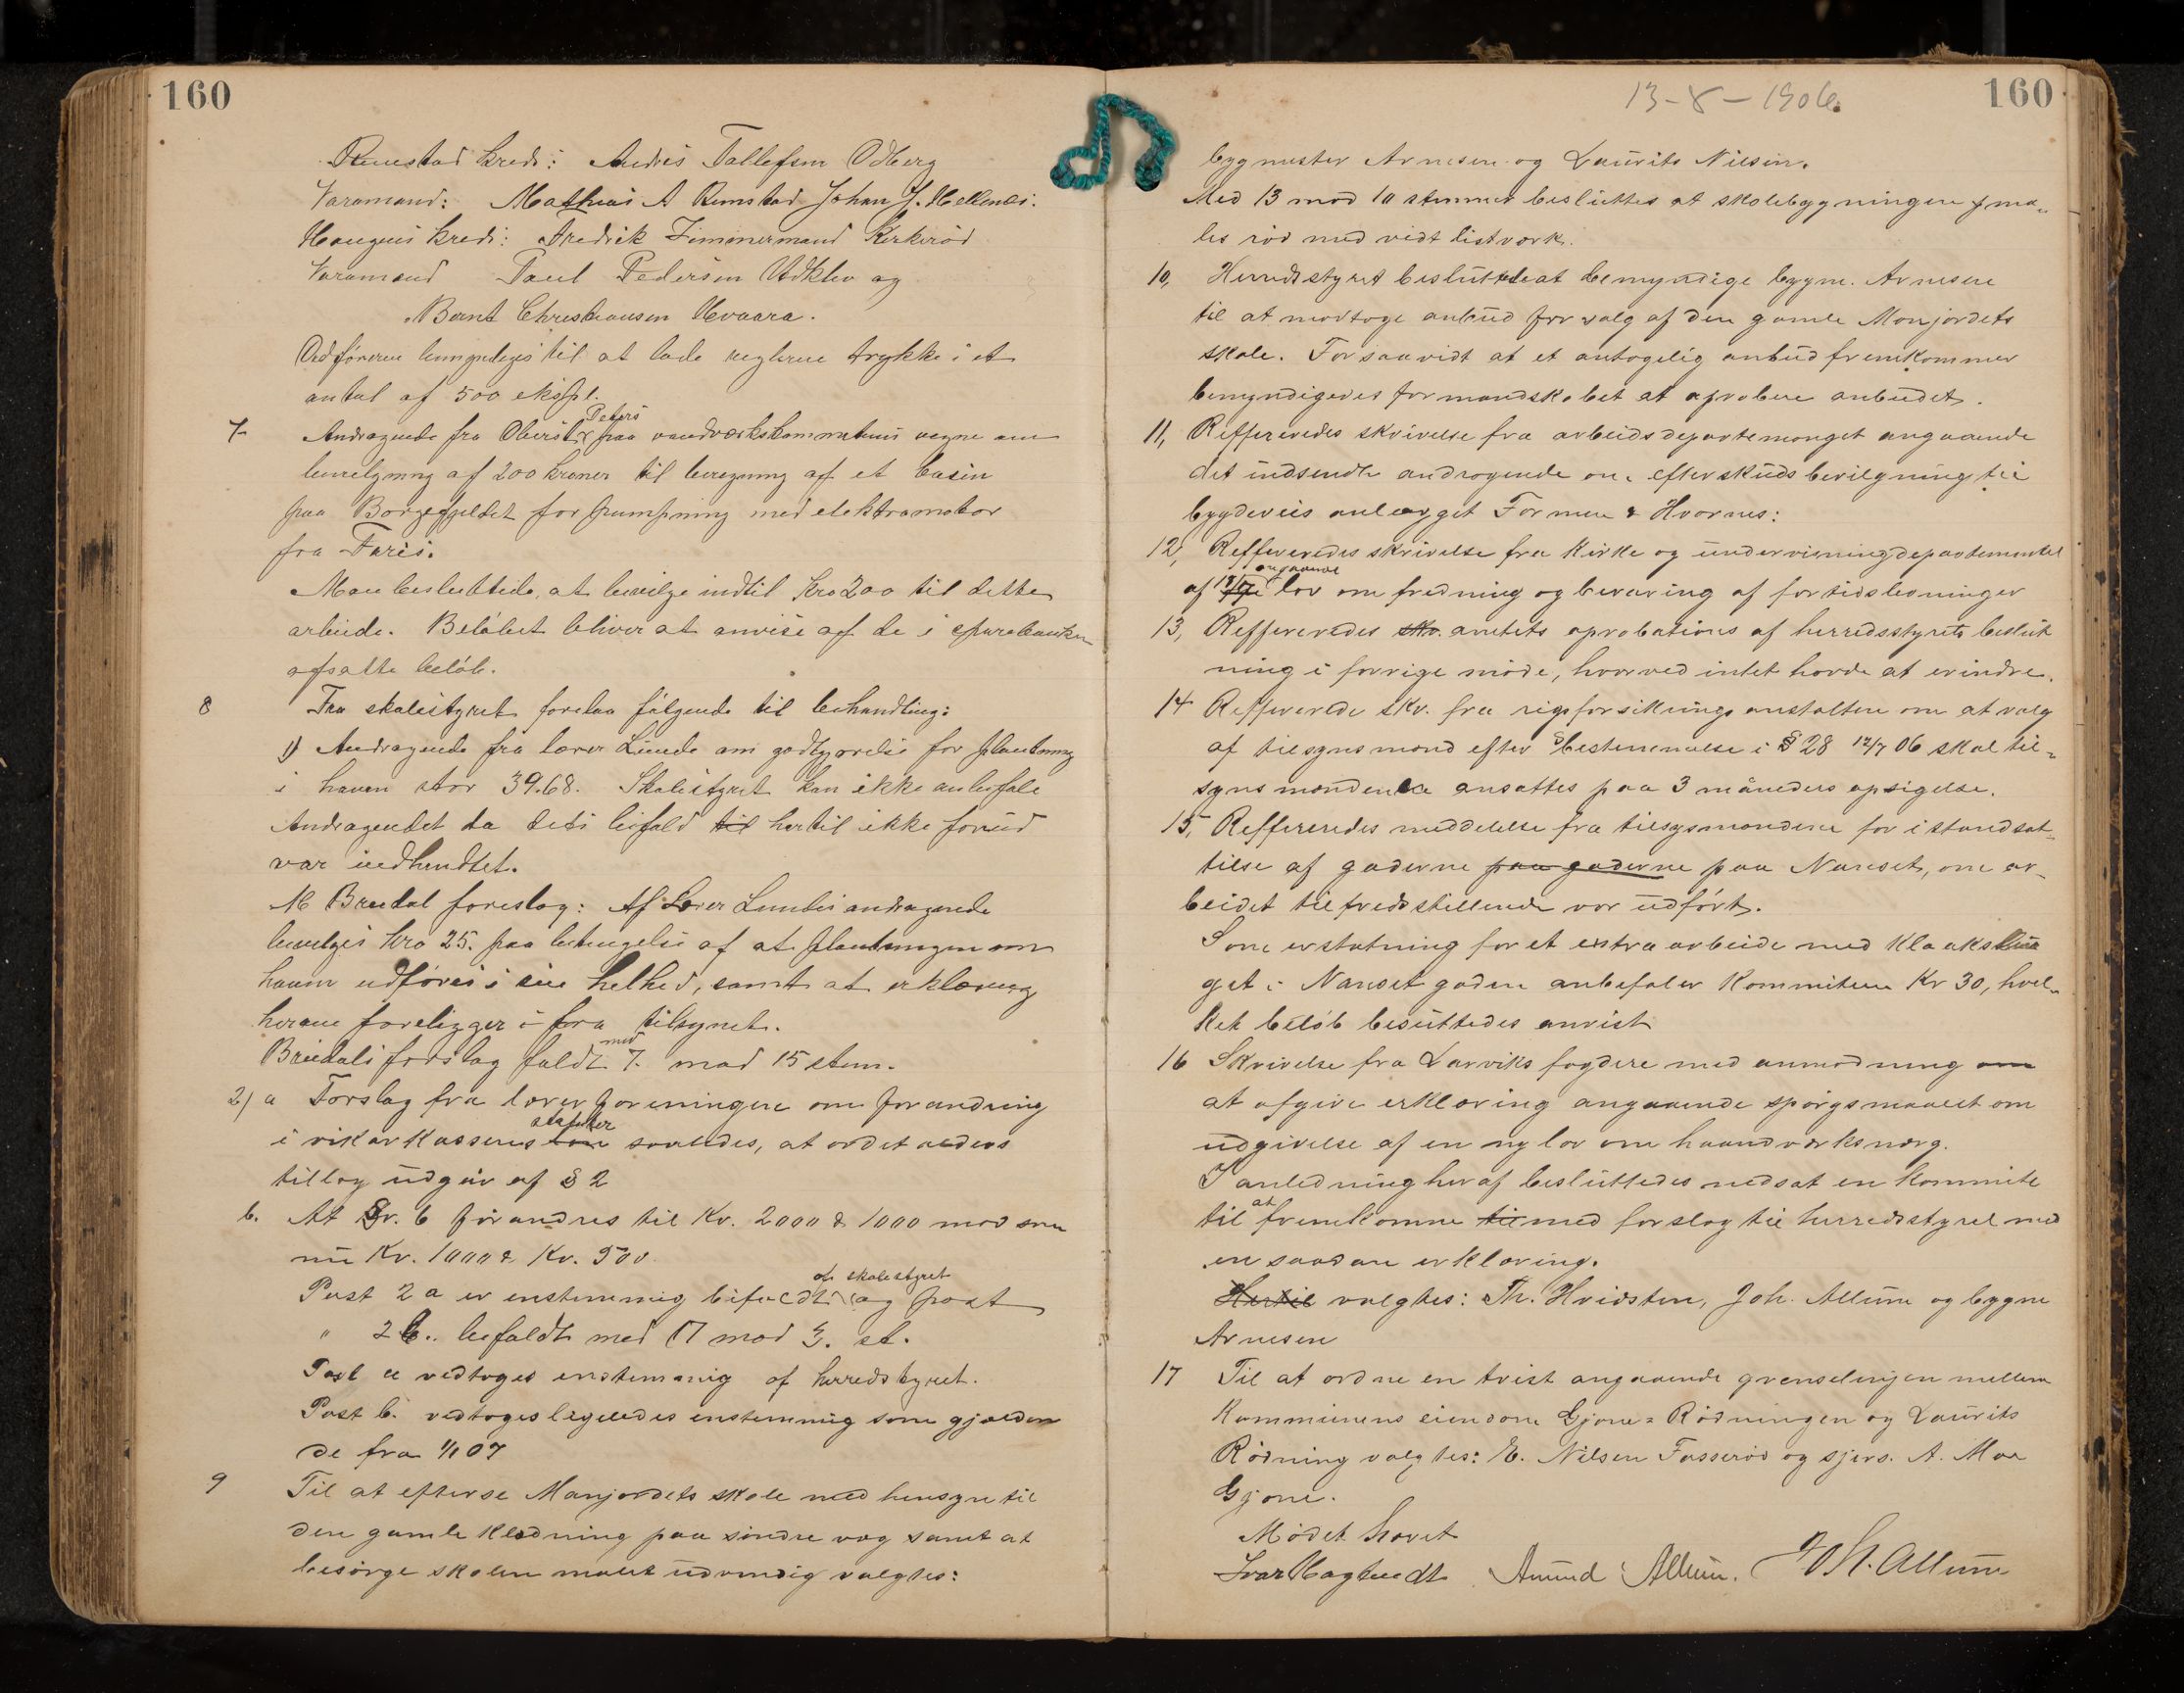 160
Rimstad kreds: Andrés Tallefsen Odberg
Varamand: Mathias A Rimstad Johan J. Hellenes.
Haugens kreds: Fredrik Zimmermand Kirkerød
Varamand Paul Pedersen Vdklev og
Bernt Christiansen Hvaara.
Ordføreren bemyndiges til at lade reglerne trykke i et
antal af 500 ekspl.
7. Andragende fra Oberst Peters paa vandværkskommitteens vegne om
bevilgning af 200 kroner til beregning af et basin
paa Borgefjeldet for pumpning med elektramotor
fra Faris.
Man besluttede, at bevilge indtil kro 200 til dette
arbeide. Beløbet bliver at anvise af de i sparebanken
afsatte beløb.
8 Fra skolestyret forelaa følgende til behandling:
1) Andragende fra lærer Lunde om godtgørelse for plantning
i haven stor 39.68. Skolestyret kan ikke anbefale
Andragendet da dets bifald til hertil ikke forud
var indhendtet.
M Bredal foreslog: Af Lærer Lundes andragende
bevilges kro 25. paa betingelse af at plantningen om
haven udføres i sin helhed, samt at erklæring
herom foreligger i fra tilsynet.
Bredals forslag faldt med 7 mod 15 stem.
2) a Forslag fra lærerforeningen om forandring
i vikarkassens lov statuter saaledes, at ordet alders
tillæg udgår af § 2
b. At Gr. 6 forandres til Kr. 2000 & 1000 mod som
nu Kr. 1000 & Kr. 500
Post 2 a er enstemmig bifaldt af skolestyret og post
" 2 b. bifaldt med 17 mod 3. st.
Post a vedtoges enstemmig af herredstyret.
Post b. vedtoges ligeledes enstemmig som gjælden
de fra 1/1 07
9 Til at efterse Manjordets skole med hensyn til
den gamle klædning paa søndre væg samt at
besørge skolen malet udvendig valgtes:
13-8-1906.
160
bygmester Arnesen og Laurits Nilsen.
Med 13 mod 10 stemmer besluttes at skolebygningen ma„
les rød med vidt listværk.
10, Herredsstyret besluttede at bemyndige bygm. Arnesen
til at modtage anbud for salg af den gamle Manjordets
skole. Forsaavidt at et antagelig anbud fremkommer
bemyndigedes formandskabet at aprobere anbudet.
11, Reffereredes skrivelse fra arbeidsdepartementet angaaende
det indsendte andragende om efterskuds bevilgning til
bygdeveis anlægget Formen & Hvarnes:
12, Reffereredes skrivelse fra Kirke og undervisningdepartementet
af 18/7 angaaende lov om fredning og bevaring af fortidslevninger
13, Reffereredes skr. amtets aprobations af herredsstyrets beslut
ning i forrige møde, hvorved intet havde at erindre.
14 Refferrede skr. fra rigsforsikrings anstalten om at valg
af tilsynsmænd efter bestemmelse i § 28 12/7 06 skal til„
synsmændene ansættes paa 3 måneders opsigelse.
15, Reffereredes meddelelse fra tilsynsmændene for istandsæt„
telse af gaderne paa gaderne paa Nanset, om ar„
beidet tilfredsstillende var udført.
Som erstatning for et extra arbeide med Kloakanlæg
get i Nanset gaden anbefaler Kommiteen Kr 30, hvil„
ket beløb besluttedes anvist
16 Skrivelse fra Larviks fogderi med anmodning om
at afgive erklæring angaaende spørgsmaalet om
udgivelse af en ny lov om haandværksnærg.
I anledning heraf besluttedes nedsat en Kommite
til at fremkomme til med forslag til herredsstyret med
en saadan erklæring.
Hertil valgtes: Th. Hvidsten, Joh. Allum og bygm
Arnesen
17 Til at ordne en tvist angaaende grenselinjen mellem
Kommunens eiendom Gjone = Rødningen og Laurits
Rødning valgtes: E. Nilsen Fasserød og sjers. A. Moe
Gjone.
Mødet hævet
Ivar Hagtvedt Amund Allum. Joh. Allum